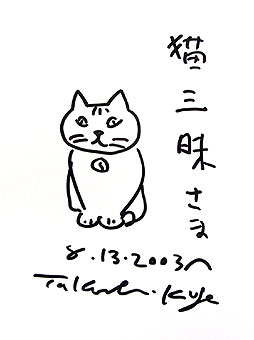 猫三昧さま
8.13.2003へ
Takashi.Kuje